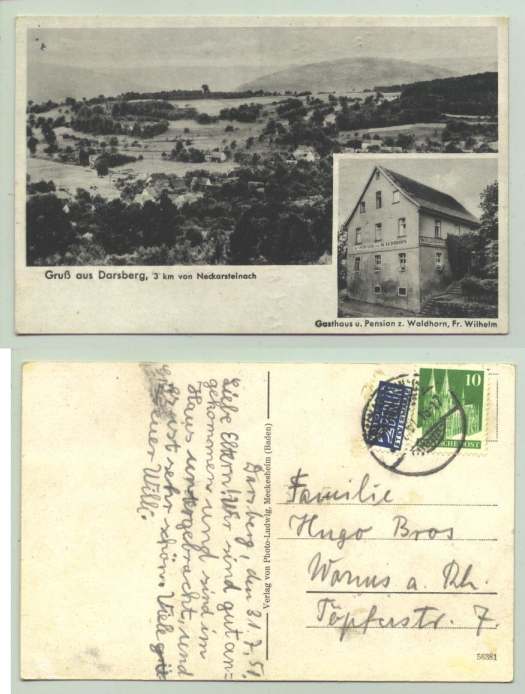 Gruß aus Darsberg, 3 km von Neckarsteinach
Gasthaus u. Pension z. Waldhorn, Fr. Wilhelm
Darsberg, den 31.7.51.
Liebe Eltern! Wir sind gut an-
gekommen und sind im
Haus untergebracht, und
es ist sehr schön. Viele grü
Euer Willi.
Verlag von Photo-Ludwig, Meckesheim (Baden)
NOTOPFER
2 BERLIN
STEUERMARKE
10
DEUTSCHE POST
Familie
Hugo Bros
Worms a. Rh.
Töpferstr. 7.
56381